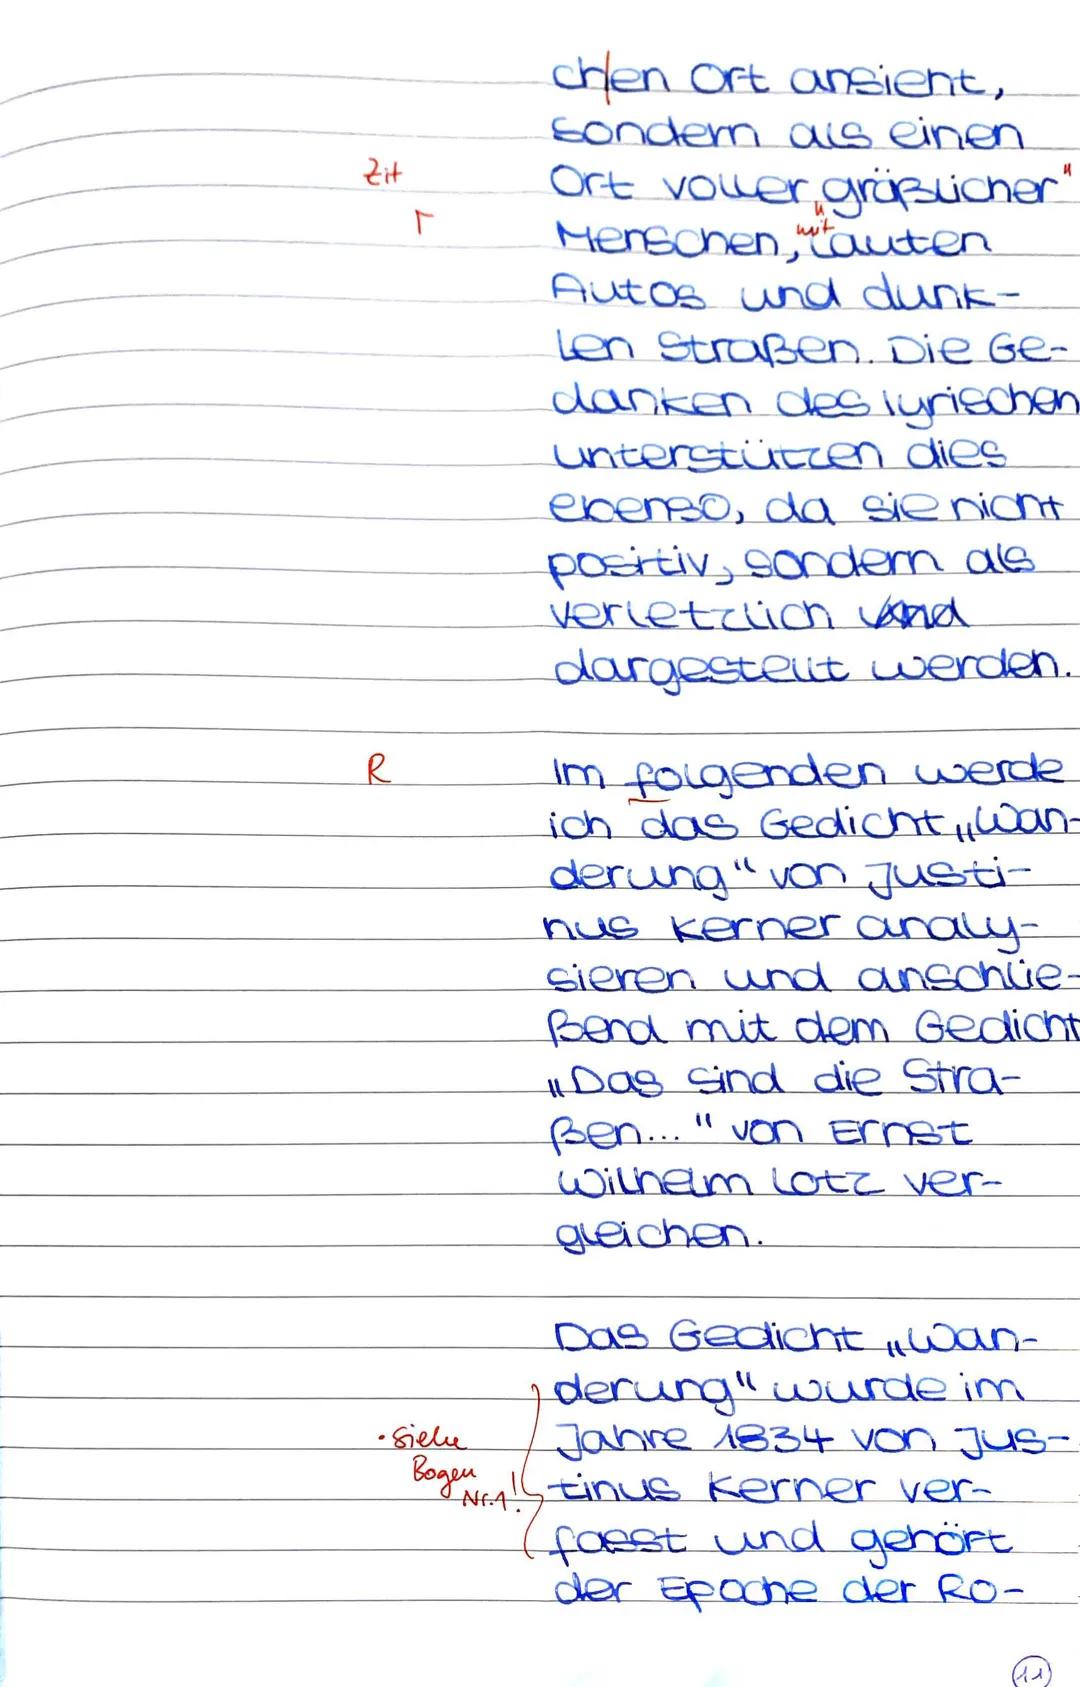 chen Ort ansieht,
sondern als einen
Zit Ort voller „gräßlicher"
Γ Menschen, mit lauten
Autos und dunk-
len Straßen. Die Ge-
danken des lyrischen
unterstützen dies
ebenso, da sie nicht
positiv, sondern als
verletzlich und
dargestellt werden.
R Im folgenden werde
ich das Gedicht „Wan-
derung" von Justi-
nus Kerner analy-
sieren und anschlie-
ßend mit dem Gedicht
„Das sind die Stra-
ßen..." von Ernst
Wilhelm Lotz ver-
gleichen.
Das Gedicht „Wan-
derung" wurde im
• siehe Jahre 1834 von Jus-
Bogen Nr.1! tinus Kerner ver-
fasst und gehört
der Epoche der Ro-
11